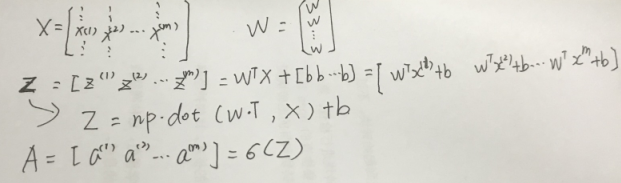 X = [x^(1) x^(2) ... x^(m)] W = [w w ... w]
Z = [z^(1) z^(2) ... z^(m)] = w^T X + [b b ... b] = [w^T x^(1) + b w^T x^(2) + b ... w^T x^m + b]
Z = np.dot (w.T, X) + b
A = [a^(1) a^(2) ... a^(m)] = 6(Z)